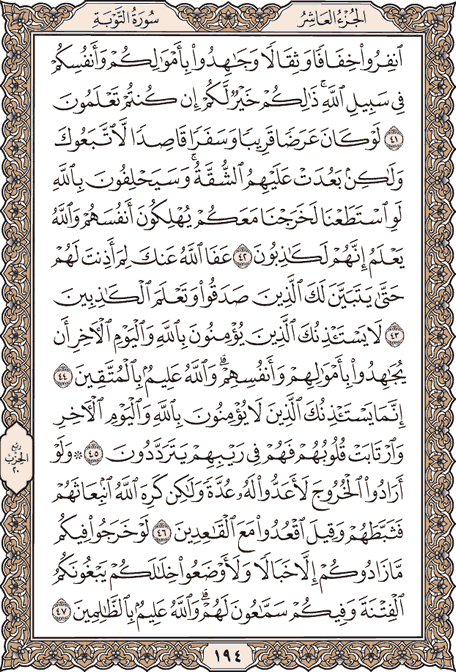 الجزء العاشر
سورة التوبة
ٱنفِرُوا۟ خِفَافًا وَثِقَالًا وَجَـٰهِدُوا۟ بِأَمْوَٰلِكُمْ وَأَنفُسِكُمْ
فِى سَبِيلِ ٱللَّهِ ۚ ذَٰلِكُمْ خَيْرٌ لَّكُمْ إِن كُنتُمْ تَعْلَمُونَ
٤١ لَوْ كَانَ عَرَضًا قَرِيبًا وَسَفَرًا قَاصِدًا لَّٱتَّبَعُوكَ
وَلَـٰكِنۢ بَعُدَتْ عَلَيْهِمُ ٱلشُّقَّةُ ۚ وَسَيَحْلِفُونَ بِٱللَّهِ
لَوِ ٱسْتَطَعْنَا لَخَرَجْنَا مَعَكُمْ يُهْلِكُونَ أَنفُسَهُمْ وَٱللَّهُ
يَعْلَمُ إِنَّهُمْ لَكَـٰذِبُونَ ٤٢ عَفَا ٱللَّهُ عَنكَ لِمَ أَذِنتَ لَهُمْ
حَتَّىٰ يَتَبَيَّنَ لَكَ ٱلَّذِينَ صَدَقُوا۟ وَتَعْلَمَ ٱلْكَـٰذِبِينَ
٤٣ لَا يَسْتَـْٔذِنُكَ ٱلَّذِينَ يُؤْمِنُونَ بِٱللَّهِ وَٱلْيَوْمِ ٱلْـَٔاخِرِ أَن
يُجَـٰهِدُوا۟ بِأَمْوَٰلِهِمْ وَأَنفُسِهِمْ ۗ وَٱللَّهُ عَلِيمٌۢ بِٱلْمُتَّقِينَ ٤٤
إِنَّمَا يَسْتَـْٔذِنُكَ ٱلَّذِينَ لَا يُؤْمِنُونَ بِٱللَّهِ وَٱلْيَوْمِ ٱلْـَٔاخِرِ
وَٱرْتَابَتْ قُلُوبُهُمْ فَهُمْ فِى رَيْبِهِمْ يَتَرَدَّدُونَ ٤٥ ۞ وَلَوْ
أَرَادُوا۟ ٱلْخُرُوجَ لَأَعَدُّوا۟ لَهُۥ عُدَّةً وَلَـٰكِن كَرِهَ ٱللَّهُ ٱنۢبِعَاثَهُمْ
فَثَبَّطَهُمْ وَقِيلَ ٱقْعُدُوا۟ مَعَ ٱلْقَـٰعِدِينَ ٤٦ لَوْ خَرَجُوا۟ فِيكُم
مَّا زَادُوكُمْ إِلَّا خَبَالًا وَلَأَوْضَعُوا۟ خِلَـٰلَكُمْ يَبْغُونَكُمُ
ٱلْفِتْنَةَ وَفِيكُمْ سَمَّـٰعُونَ لَهُمْ ۗ وَٱللَّهُ عَلِيمٌۢ بِٱلظَّـٰلِمِينَ ٤٧
ربع
الحزب
٢٠
١٩٤